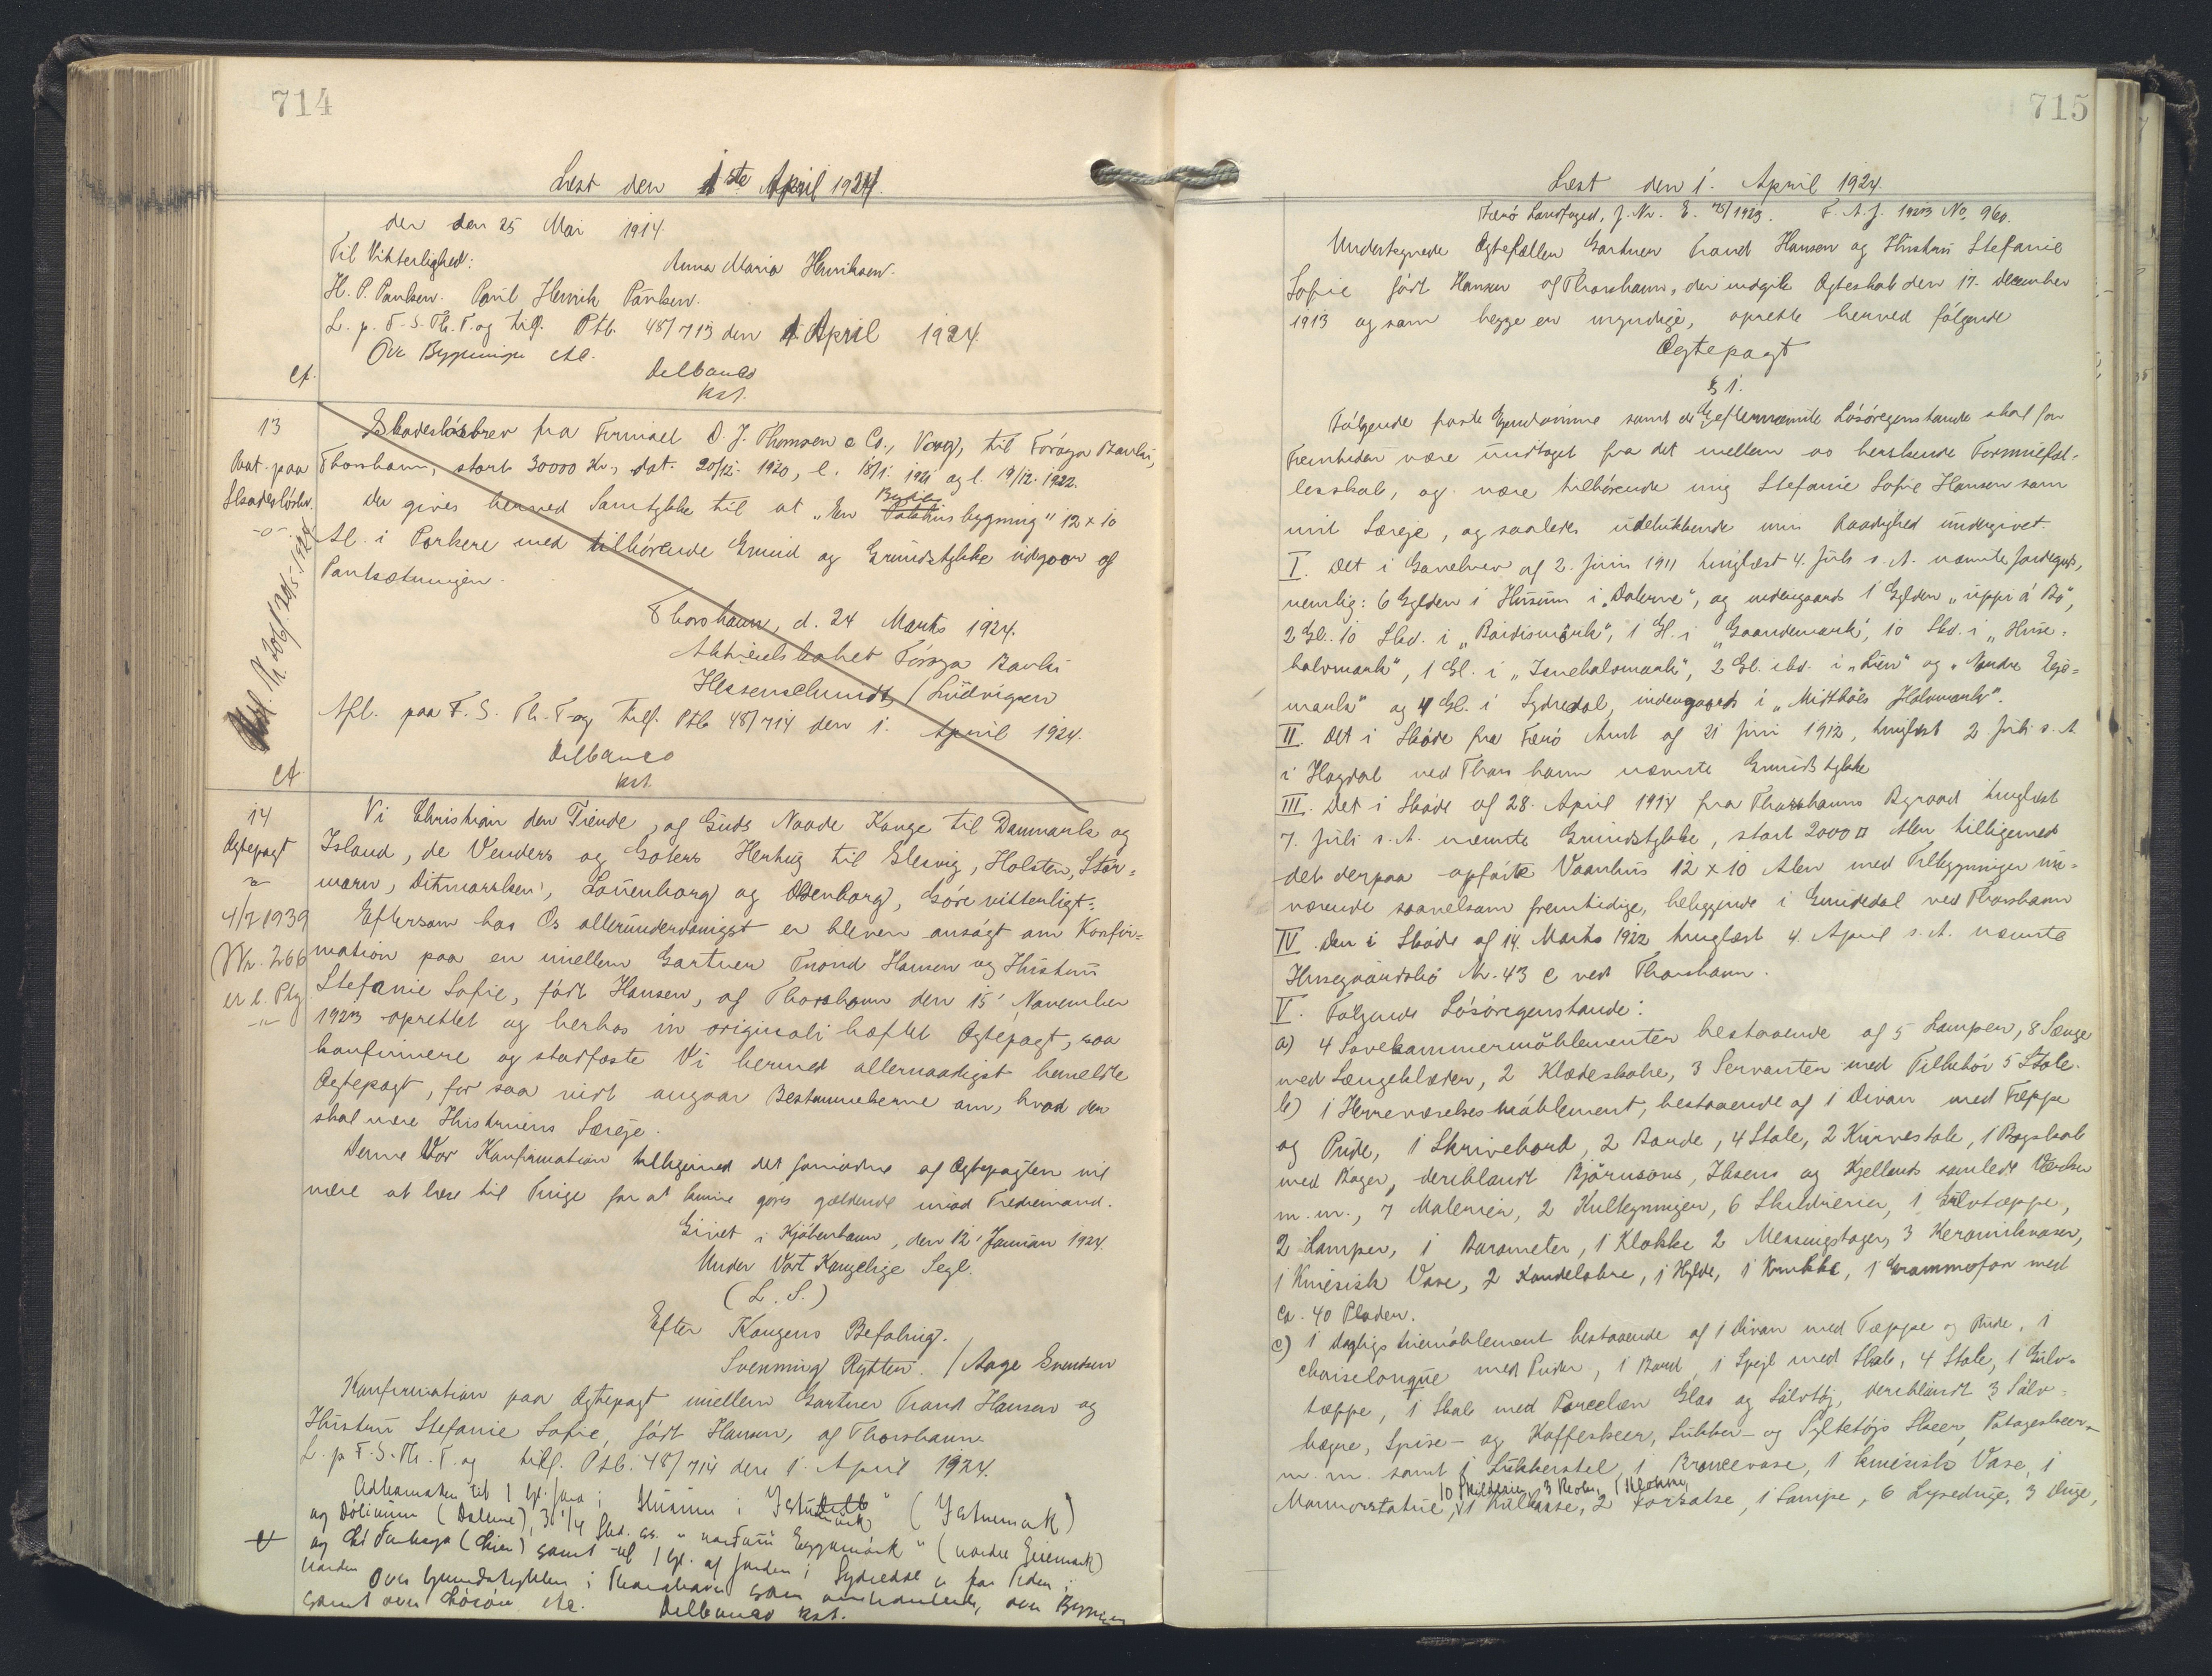 714
Læst den 1ste April 1924.
der den 25 Mai 1914
Til Vitterlighed: Anna Maria Henriksen.
H. P. Paulsen. Paul Henrik Paulsen.
L. p. F. S. Th. T. og tilf. Ptb. 48/713 den 1 April 1924.
Ovr Bygninger
Delbanco
kst.
13
Kvat. paa
Skadesløsbr.
Skadesløsbrev fra Firmaet D. J. Thomsen & Co., Vaag, til Føroya Banki,
Thorshavn, stort 30000 Kr., dat. 20/12. 1920, l. 18/1. 1921 og l. 19/12. 1922.
Der gives herved Samtykke til at "En Pakhusbygning" 12 x 10
Al. i Porkere med tilhørende Grund og Grundstykke udgaar af
Pantsætningen.
Thorshavn, d. 24 Marts 1924.
Aktieselskabet Føroya Banki
Hessenschmidt / Ludvigsen
Afl. paa F. S. Th. T. og tilf. Ptb 48/714 den 1. April 1924.
Delbanco
kst.
14
Ægtepagt
4/7 1939
Nr. 266
er l. Phg.
Vi Christian den Tiende, af Guds Naade Konge til Danmark og
Island, de Venders og Goters Hertug til Slesvig, Holsten, Stor=
marn, Ditmarsken, Lauenborg og Oldenborg, Gøre vitterligt:
Eftersom hos Os allerunderdanigst er bleven ansøgt om Konfir=
mation paa en imellem Gartner Trond Hansen og Hustru
Stefanie Sofie, født Hansen, af Thorshavn den 15' November
1923 oprettet og herhos in originali hæftet Ægtepagt, saa
konfirmere og stadfæste Vi hermed allernaadigst bemeldte
Ægtepagt, for saa vidt angaar Bestemmelserne om, hvad der
skal være Hustruens Særeje.
Denne Vor Konfirmation tilligemed det fornødne af Ægtepagten vil
være at læse til Tinge for at kunne gøres gældende imod Tredjemand.
Givet i Kjøbenhavn, den 12' Januar 1924.
Under Vort Kongelige Segl.
(L. S.)
Efter Kongens Befaling.
Svenning Rytter. / Aage Svendsen
Konfirmation paa Ægtepagt imellem Gartner Trond Hansen og
Hustru Stefanie Sofie, født Hansen, af Thorshavn.
L. p. F. S. Th. T. og tilf. Ptb. 48/714 den 1. April 1924.
Adkomsten til 1 Gl. Jord i Husum i (Istnemark)
og Dølimum (Dalene), (nordre Ejemark)
samt til 1 Gl. af Jorden i Sydredal er for Tiden i
Orden Over Grundstykkerne i Thorshavn
samt over Løsøre Delbanco kst.
715
Læst den 1. April 1924.
Færø Landfoged, J. Nr. E. 78/1923. F. A. J. 1923 No. 960.
Undertegnede Ægtefæller Gartner Trond Hansen og Hustru Stefanie
Sofie født Hansen af Thorshavn, der indgik Ægteskab den 17. December
1913 og som begge er myndige, oprette herved følgende
Ægtepagt
§ 1.
Følgende faste Ejendomme samt de efternævnte Løsøregenstande skal for
Fremtiden være undtaget fra det mellem os herskende Formuefæl-
lesskab, og være tilhørende mig Stefanie Sofie Hansen som
mit Særeje, og saaledes udelukkende min Raadighed undergivet.
I. Det i Gavebrev af 2. Juni 1911 tinglæst 4. Juli s. A. nævnte Jordegods,
nemlig: 6 Gylden i Husum i "Dalerne", og indengaards 1 Gylden "uppi á Bø",
2 Gl. 10 Skd. i "Bárdismørk", 1 Gl. i "Gaardemark", 10 Skd. i "Huse=
halvmark", 1 Gl. i "Isnehalsmark", 2 Gl. ibd. i "Lien" og "Nordre Eje=
mark" og 4 Gl. i Sydredal, indengaards i "Midthøls Halvmark".
II. Det i Skøde fra Færø Amt af 21 Juni 1912, tinglæst 2. Juli s. A.
i Hoydal ved Thorshavn nævnte Grundstykke
III. Det i Skøde af 28. April 1914 fra Thorshavns Byraad tinglæst
7. Juli s. A. nævnte Grundstykke, stort 2000 □ Alen tilligemed
det derpaa opførte Vaanhus 12 x 10 Alen med Tilbygninger nu=
værende saavelsom fremtidige, beliggende i Gundedal ved Thorshavn
IV. Den i Skøde af 14. Marts 1922 tinglæst 4. April s. A. nævnte
Husegaardsbø Nr. 43 c ved Thorshavn.
V. Følgende Løsøregenstande:
a) 4 Sovekammermøblementer bestaaende af 5 Lamper, 8 Senge
med Sengeklæder, 2 Klædeskabe, 3 Servanter med Tilbehør 5 Stole.
b) 1 Herreværelsesmøblement, bestaaende af 1 Divan med Tæppe
og Pude, 1 Skrivebord, 2 Borde, 4 Stole, 2 Kurvestole, 1 Bogskab
med Bøger, deriblandt Bjørnsons, Ibsens og Kjellands samlede Værker
m. m., 7 Malerier, 2 Kultegninger, 6 Skilderier, 1 Gulvtæppe,
2 Lamper, 1 Barometer, 1 Klokke 2 Messingstager, 3 Keramikvaser,
1 Kinesisk Vase, 2 Kandelabre, 1 Hylde, 1 Krukke, 1 Grammofon med
ca. 40 Plader.
c) 1 Dagligstuemøblement bestaaende af 1 Divan med Tæppe og Pude, 1
chaiselongue med Puder, 1 Bord, 1 Spejl med Skab, 4 Stole, 1 Gulv=
tæppe, 1 Skab med Porcelæn Glas og Sølvtøj, deriblandt 3 Sølv=
bægre, Spise- og Kaffeskeer, Sukker- og Syltetøjs Skeer, Potageskeer
m. m. samt 1 Sukkerstel, 1 Broncevase, 1 kinesisk Vase, 1
10 Skilderier, 3 Reoler, 1 Klokke,
Marmorstatue, 1 Kulkasse, 2 Forsatse, 1 Lampe, 6 Lyseduge, 3 Duge,